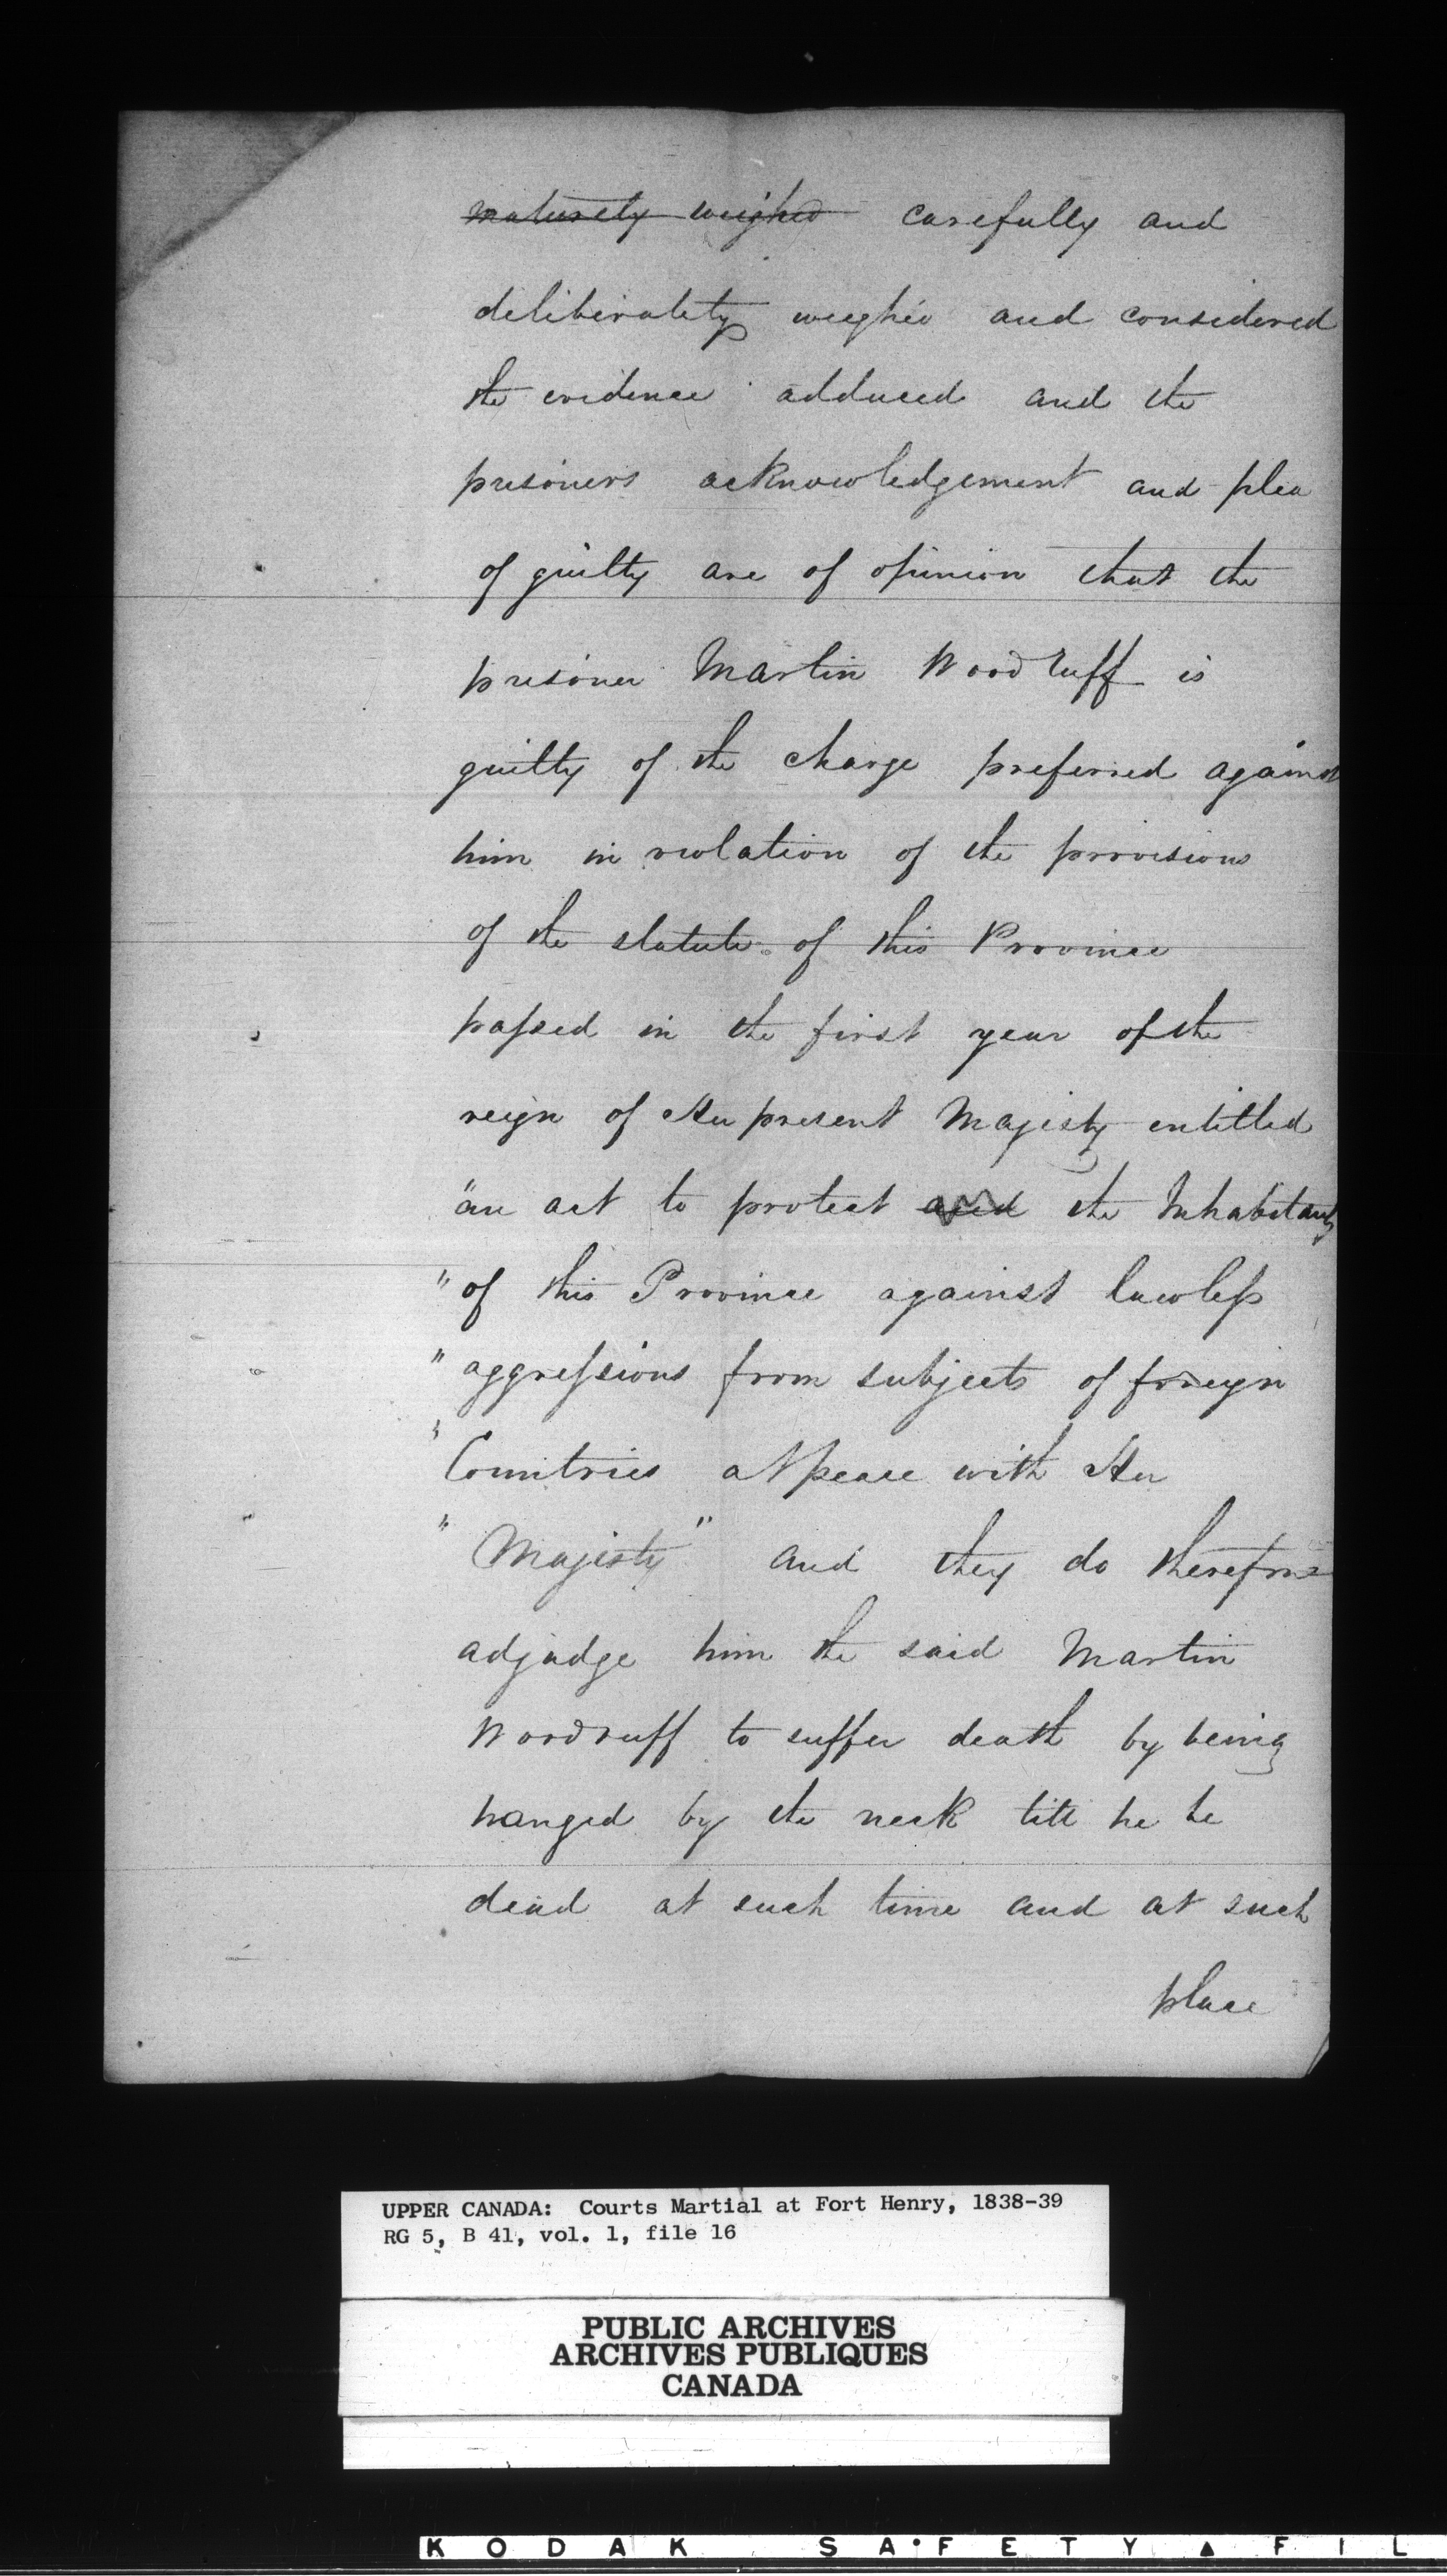 ~~maturely weighed~~ carefully and
deliberately weighed and considered
the evidence adduced and the
prisoners acknowledgement and plea
of guilty are of opinion that the
prisoner Martin Woodruff is
guilty of the charge preferred against
him in violation of the provisions
of the statute of this Province
passed in the first year of the
reign of Her present Majesty entitled
"an act to protect ~~and~~ the Inhabitants
" of this Province against lawless
" aggressions from subjects of foreign
" Countries at peace with Her
" Majesty" and they do therefore
adjudge him the said Martin
Woodruff to suffer death by being
hanged by the neck till he be
dead at such time and at such
place
UPPER CANADA: Courts Martial at Fort Henry, 1838-39
RG 5, B 41, vol. 1, file 16
PUBLIC ARCHIVES
ARCHIVES PUBLIQUES
CANADA
KODAK SAFETY FIL